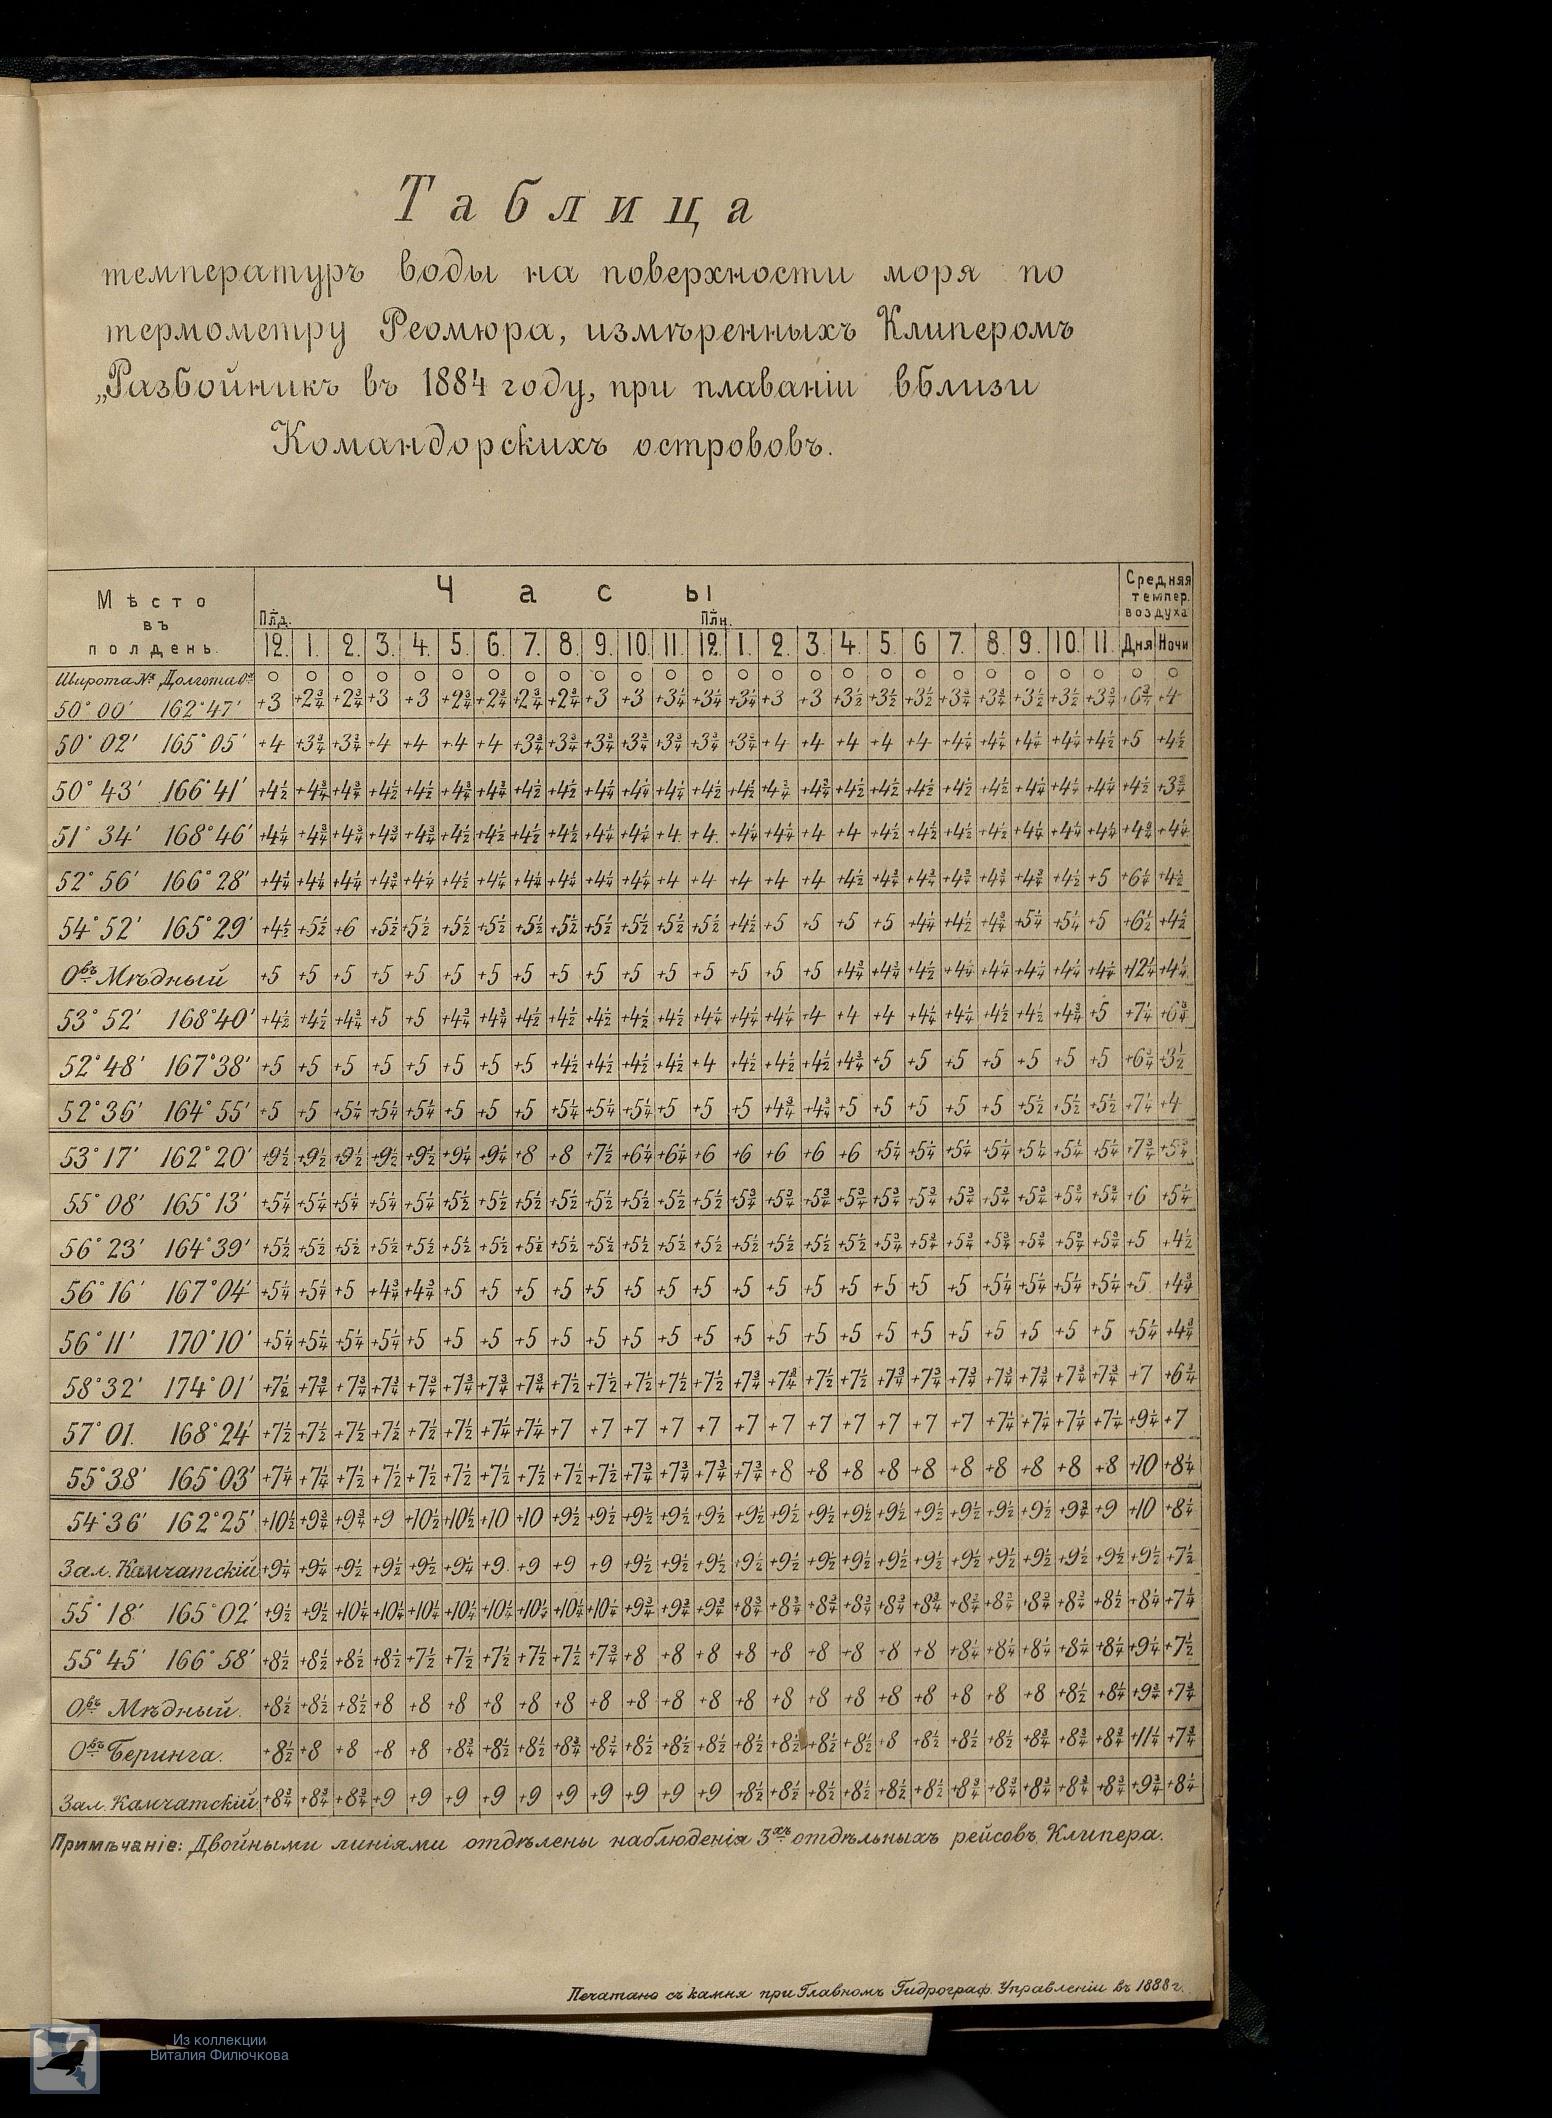 Таблица
температуръ воды на поверхности моря по
термометру Реомюра, измѣренныхъ Клиперомъ
„Разбойникъ въ 1884 году, при плаваніи вблизи
Командорскихъ острововъ.
Мѣсто въ полдень. Часы Средняя темпер. воздуха
Плд. Плн.
12. 1. 2. 3. 4. 5. 6. 7. 8. 9. 10. 11. 12. 1. 2. 3. 4. 5. 6 7. 8. 9. 10. 11. Дня Ночи
Широта Nя Долгота Оя
50° 00' 162° 47' +3 +2¾ +2¾ +3 +3 +2¾ +2¾ +2¾ +2¾ +3 +3 +3¼ +3¼ +3¼ +3 +3 +3½ +3½ +3½ +3¾ +3¾ +3½ +3½ +3¾ +6¾ +4
50° 02' 165° 05' +4 +3¾ +3¾ +4 +4 +4 +4 +3¾ +3¾ +3¾ +3¾ +3¾ +3¾ +3¾ +4 +4 +4 +4 +4 +4¼ +4¼ +4¼ +4¼ +4½ +5 +4½
50° 43' 166° 41' +4½ +4¾ +4¾ +4½ +4½ +4¾ +4¾ +4½ +4½ +4¼ +4¼ +4¼ +4½ +4½ +4¾ +4¾ +4½ +4½ +4½ +4½ +4½ +4¼ +4¼ +4¼ +4½ +3¾
51° 34' 168° 46' +4¼ +4¾ +4¾ +4¾ +4¾ +4½ +4½ +4½ +4½ +4¼ +4¼ +4 +4 +4¼ +4¼ +4 +4 +4½ +4½ +4½ +4½ +4¼ +4¼ +4¼ +4¾ +4¼
52° 56' 166° 28' +4¼ +4¼ +4¼ +4¾ +4¼ +4½ +4¼ +4¼ +4¼ +4¼ +4¼ +4 +4 +4 +4 +4 +4½ +4¾ +4¾ +4¾ +4¾ +4¾ +4½ +5 +6¼ +4½
54° 52' 165° 29' +4½ +5½ +6 +5½ +5½ +5½ +5½ +5½ +5½ +5½ +5½ +5½ +5½ +4½ +5 +5 +5 +5 +4¼ +4½ +4¾ +5¼ +5¼ +5 +6½ +4½
Овъ Мѣдный +5 +5 +5 +5 +5 +5 +5 +5 +5 +5 +5 +5 +5 +5 +5 +5 +4¾ +4¾ +4½ +4¼ +4¼ +4¼ +4¼ +4¼ +12¼ +4¼
53° 52' 168° 40' +4½ +4½ +4¾ +5 +5 +4¾ +4¾ +4½ +4½ +4½ +4½ +4½ +4¼ +4¼ +4¼ +4 +4 +4 +4¼ +4¼ +4½ +4½ +4¾ +5 +7¼ +6¾
52° 48' 167° 38' +5 +5 +5 +5 +5 +5 +5 +5 +4½ +4½ +4½ +4½ +4 +4½ +4½ +4½ +4¾ +5 +5 +5 +5 +5 +5 +5 +6¾ +3½
52° 36' 164° 55' +5 +5 +5¼ +5¼ +5¼ +5 +5 +5 +5¼ +5¼ +5¼ +5 +5 +5 +4¾ +4¾ +5 +5 +5 +5 +5 +5½ +5½ +5½ +7¼ +4
53° 17' 162° 20' +9½ +9½ +9½ +9½ +9½ +9¼ +9¼ +8 +8 +7½ +6¼ +6¼ +6 +6 +6 +6 +6 +5¼ +5¼ +5¼ +5¼ +5¼ +5¼ +5¼ +7¾ +5¾
55° 08' 165° 13' +5¼ +5¼ +5¼ +5¼ +5¼ +5½ +5½ +5½ +5½ +5½ +5½ +5½ +5½ +5¾ +5¾ +5¾ +5¾ +5¾ +5¾ +5¾ +5¾ +5¾ +5¾ +5¾ +6 +5¼
56° 23' 164° 39' +5½ +5½ +5½ +5½ +5½ +5½ +5½ +5½ +5½ +5½ +5½ +5½ +5½ +5½ +5½ +5½ +5½ +5¾ +5¾ +5¾ +5¾ +5¾ +5¾ +5¾ +5 +4½
56° 16' 167° 04' +5¼ +5¼ +5 +4¾ +4¾ +5 +5 +5 +5 +5 +5 +5 +5 +5 +5 +5 +5 +5 +5 +5 +5¼ +5¼ +5¼ +5¼ +5 +4¾
56° 11' 170° 10' +5¼ +5¼ +5¼ +5¼ +5 +5 +5 +5 +5 +5 +5 +5 +5 +5 +5 +5 +5 +5 +5 +5 +5 +5 +5 +5 +5¼ +4¾
58° 32' 174° 01' +7½ +7¾ +7¾ +7¾ +7¾ +7¾ +7¾ +7¾ +7½ +7½ +7½ +7½ +7½ +7¾ +7¾ +7½ +7½ +7¾ +7¾ +7¾ +7¾ +7¾ +7¾ +7¾ +7 +6¾
57° 01. 168° 24' +7½ +7½ +7½ +7½ +7½ +7½ +7¼ +7¼ +7 +7 +7 +7 +7 +7 +7 +7 +7 +7 +7 +7 +7¼ +7¼ +7¼ +7¼ +9¼ +7
55° 38' 165° 03' +7¼ +7¼ +7½ +7½ +7½ +7½ +7½ +7½ +7½ +7½ +7¾ +7¾ +7¾ +7¾ +8 +8 +8 +8 +8 +8 +8 +8 +8 +8 +10 +8¼
54° 36' 162° 25' +10½ +9¾ +9¾ +9 +10½ +10½ +10 +10 +9½ +9½ +9½ +9½ +9½ +9½ +9½ +9½ +9½ +9½ +9½ +9½ +9½ +9½ +9¾ +9 +10 +8¼
Зал. Камчатскій +9¼ +9¼ +9½ +9½ +9½ +9¼ +9 +9 +9 +9 +9½ +9½ +9½ +9½ +9½ +9½ +9½ +9½ +9½ +9½ +9½ +9½ +9½ +9½ +9½ +7½
55° 18' 165° 02' +9½ +9½ +10¼ +10¼ +10¼ +10¼ +10¼ +10¼ +10¼ +10¼ +9¾ +9¾ +9¾ +8¾ +8¾ +8¾ +8¾ +8¾ +8¾ +8¾ +8¾ +8¾ +8¾ +8½ +8¼ +7¼
55° 45' 166° 58' +8½ +8½ +8½ +8½ +7½ +7½ +7½ +7½ +7½ +7¾ +8 +8 +8 +8 +8 +8 +8 +8 +8 +8¼ +8¼ +8¼ +8¼ +8¼ +9¼ +7½
Овъ Мѣдный. +8½ +8½ +8½ +8 +8 +8 +8 +8 +8 +8 +8 +8 +8 +8 +8 +8 +8 +8 +8 +8 +8 +8 +8½ +8¼ +9¾ +7¾
Овъ Беринга. +8½ +8 +8 +8 +8 +8¾ +8½ +8½ +8¾ +8¾ +8½ +8½ +8½ +8½ +8½ +8½ +8½ +8 +8½ +8½ +8½ +8¾ +8¾ +8¾ +11¼ +7¾
Зал. Камчатскій +8¾ +8¾ +8¾ +9 +9 +9 +9 +9 +9 +9 +9 +9 +9 +8½ +8½ +8½ +8½ +8½ +8½ +8¾ +8¾ +8¾ +8¾ +8¾ +9¾ +8¼
Примѣчаніе: Двойными линіями отдѣлены наблюденія 3хъ отдѣльныхъ рейсовъ Клипера.
Печатано съ камня при Главномъ Гидрограф. Управленіи въ 1888 г.
Из коллекции
Виталия Филючкова